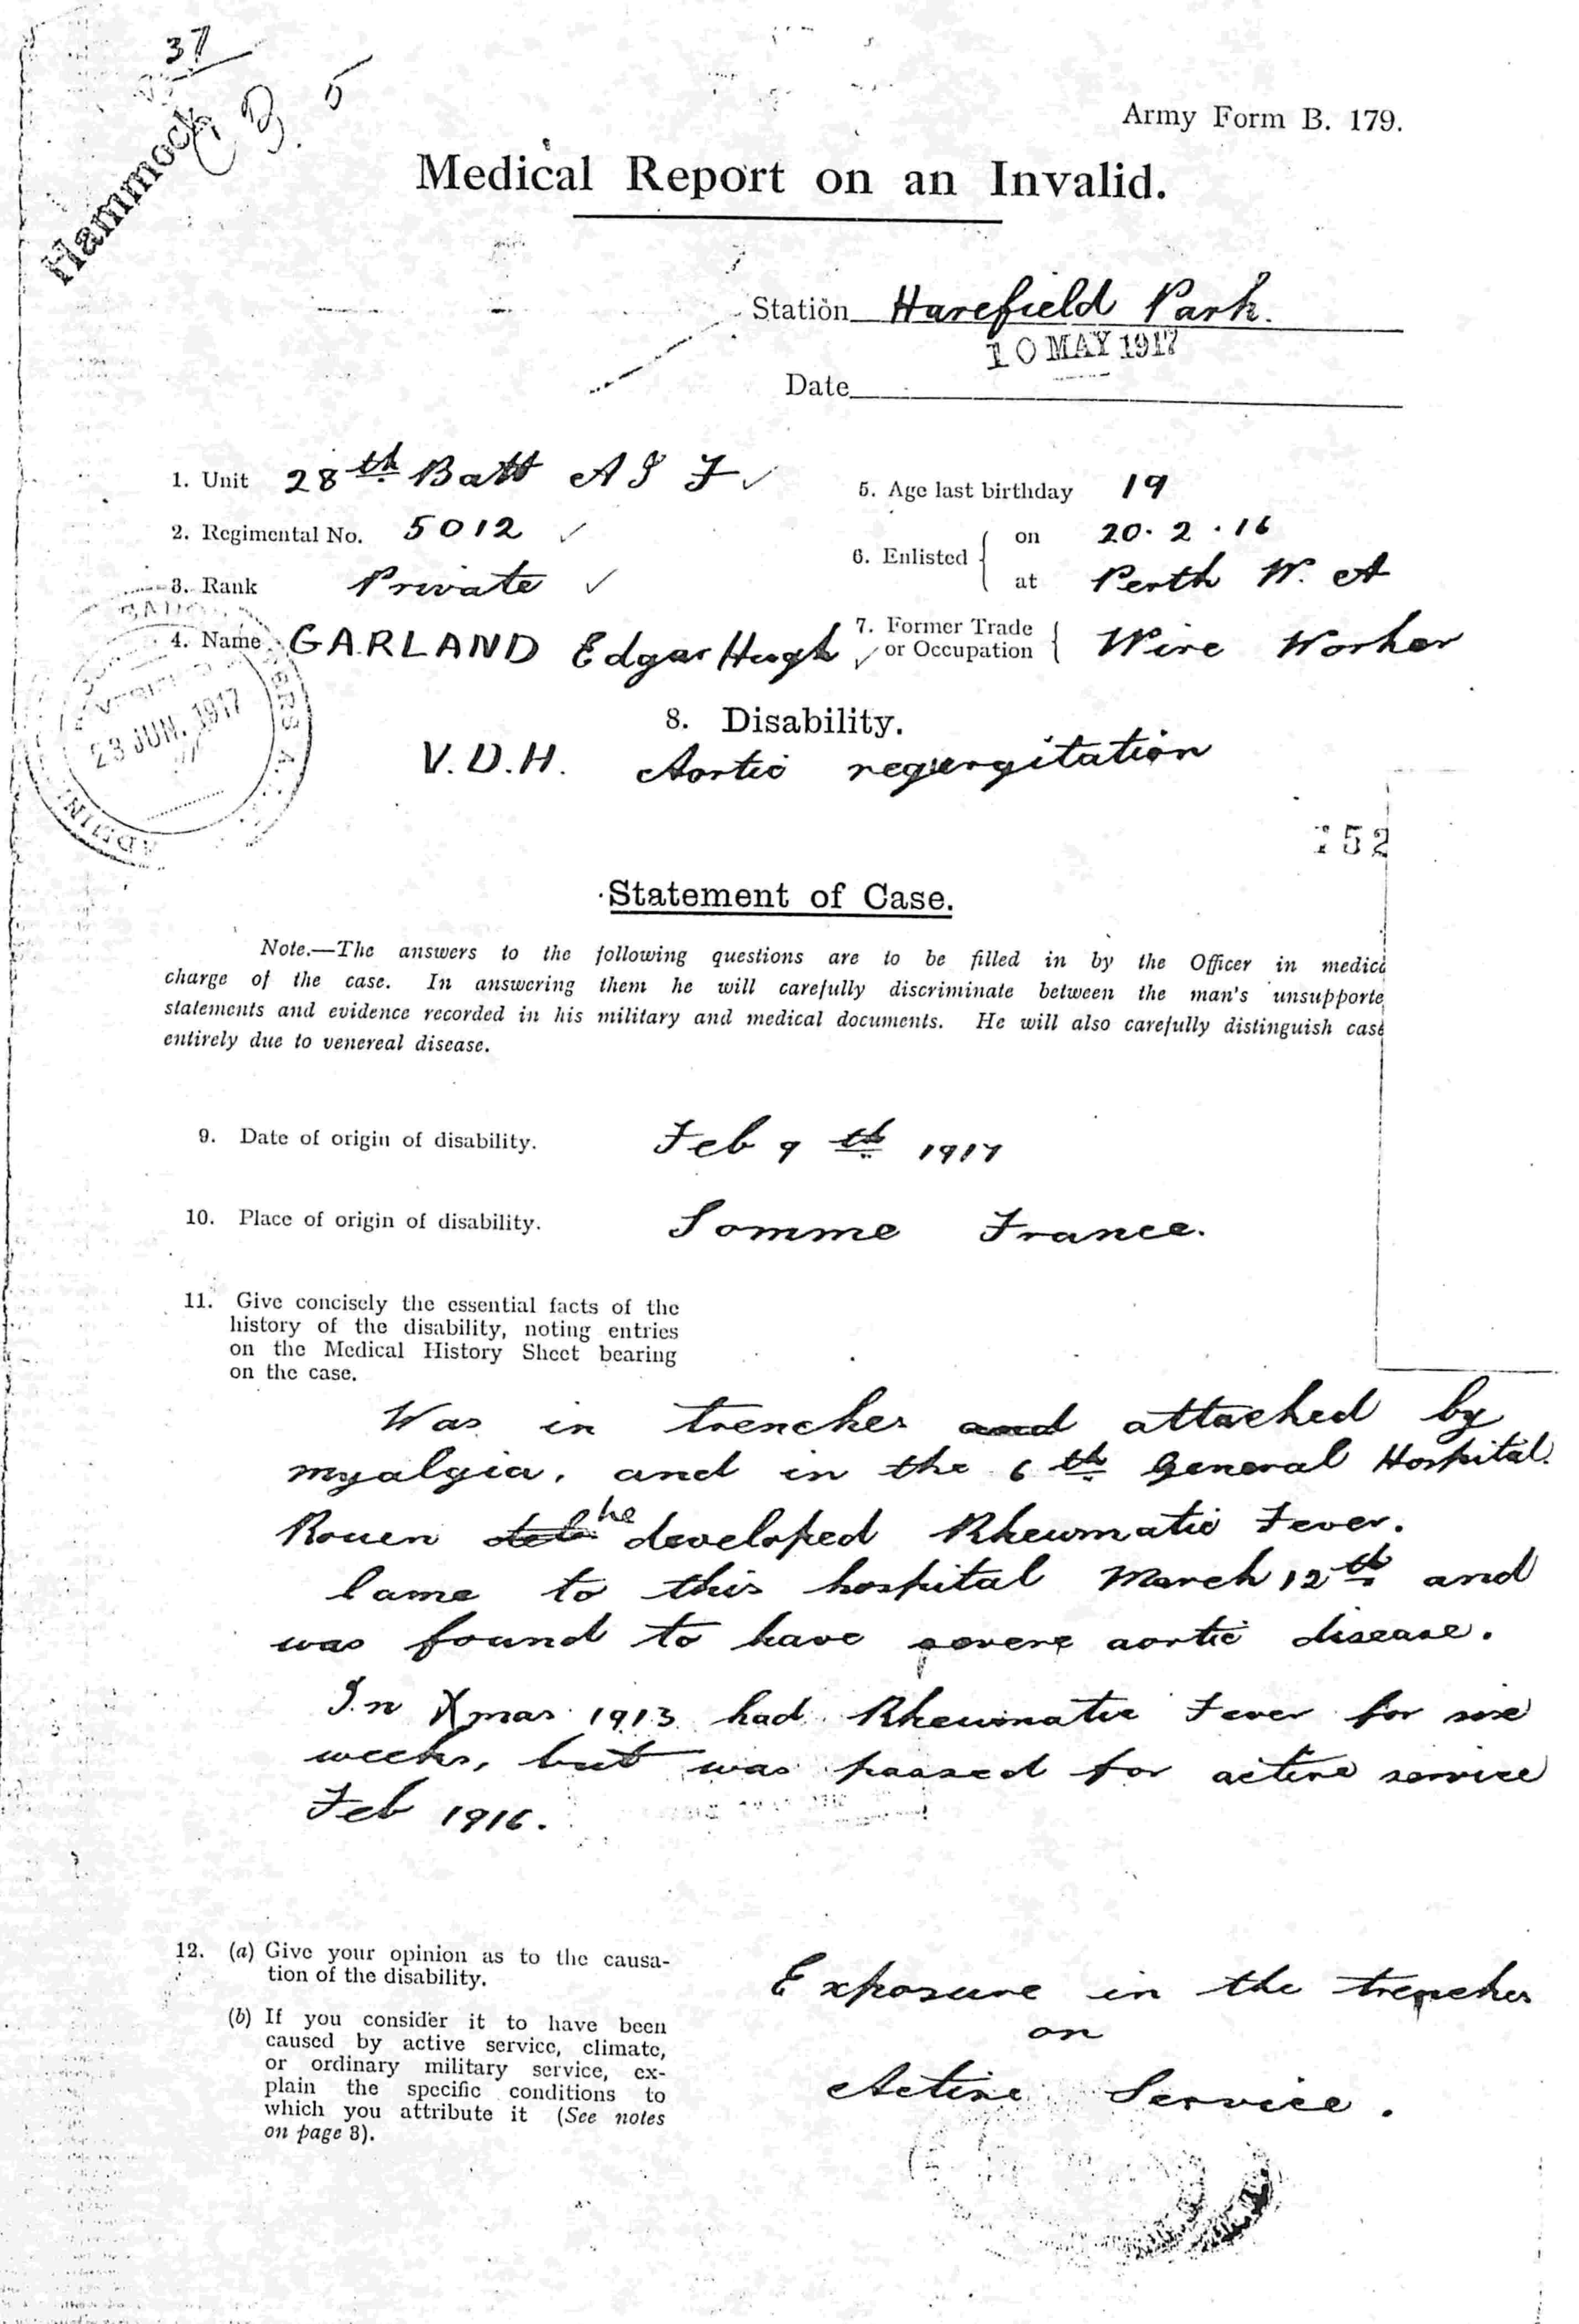 37
Hammock
C B. 5
Army Form B. 179.
Medical Report on an Invalid.
Station Harefield Park.
10 MAY 1917
Date
1. Unit 28th Batt A I F ✓
5. Age last birthday 19
2. Regimental No. 5012 ✓
6. Enlisted { on 20. 2. 16
3. Rank Private ✓
at Perth W. A
4. Name GARLAND Edgar Hugh ✓
7. Former Trade
or Occupation { Wire Worker
23 JUN. 1917
ADMIN
8. Disability.
V.D.H. Aortic regurgitation
52
Statement of Case.
Note.—The answers to the following questions are to be filled in by the Officer in medica
charge of the case. In answering them he will carefully discriminate between the man's unsupporte
statements and evidence recorded in his military and medical documents. He will also carefully distinguish case
entirely due to venereal disease.
9. Date of origin of disability. Feb 9th 1917
10. Place of origin of disability. Somme France.
11. Give concisely the essential facts of the
history of the disability, noting entries
on the Medical History Sheet bearing
on the case.
Was in trenches and attached by
myalgia, and in the 6th General Hospital.
Rouen he developed Rheumatic Fever.
Came to this hospital March 12th and
was found to have severe aortic disease.
In Xmas 1913 had Rheumatic Fever for six
weeks, but was passed for active service
Feb 1916.
12. (a) Give your opinion as to the causa-
tion of the disability.
Exposure in the trenches
on
Active Service.
(b) If you consider it to have been
caused by active service, climate,
or ordinary military service, ex-
plain the specific conditions to
which you attribute it (See notes
on page 3).